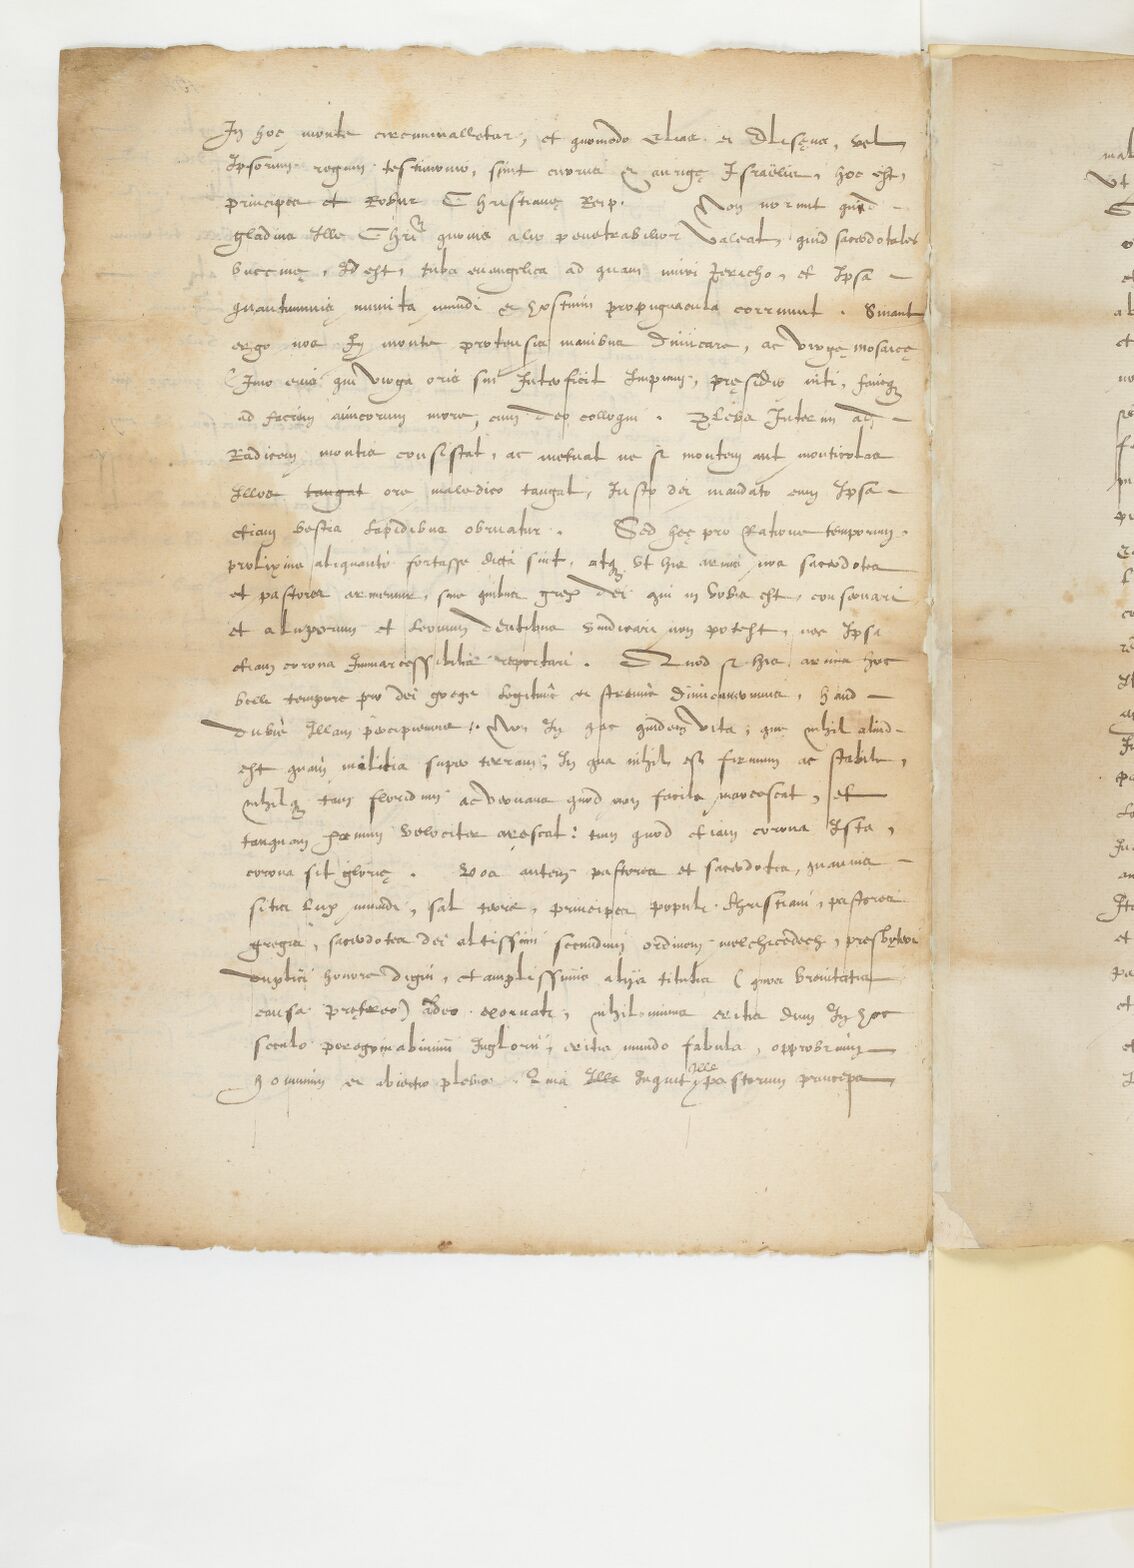 In hoc monte circumvalletur, et quomodo Elias et Elisęus, vel
Ipsorum regum testimonio, sint currus et aurigę Israëlis, hoc est,
principes et Robur Christianę Reip. Non norunt quid
gladius Ille Chri quovis alio penetrabilior Valeat, quid sacerdotales
buccinę, Id est, tuba euangelica ad quam muri Jericho, et Ipsa
quantumuis munita mundi et hostium propugnacula corruunt. Sinant
ergo nos In monte protensis manibus Dimicare, ac Virgę mosaicę
(Imo eius qui Virga oris sui Interficit Impium, pręsidio niti, facieq
ad faciem amicorum more, cum Deo colloqui. Plebs Interim ad
Radicem montis consistat, ac metuat ne si montem aut monticolas
Illos tangat ore maledico tangat, Iusto dei mandato cum Ipsa
etiam bestia Lapidibus obruatur. Sed hęc pro Ratione temporum
prolixius aliquanto fortasse dicta sint, atq Vt his armis nos sacerdotes
et pastores armemur, sine quibus grex Dei qui in Vobis est, conseruari
et a luporum et Leonum Dentibus Vindicari non potest, nec Ipsa
etiam corona Immarcessibilis reportari. Quod si his armis hoc
belli tempore pro dei grege Legitimè et strenuè dimicauerimus, haud
Dubiè Illam percipiemus. Non In hac quidem Vita, quę nihil aliud
est quàm militia super terram, In qua nihil est firmum ac stabile,
nihilq tam floridum ac Vernans quod non facile marcescat, et
tanquam foenum Velociter arescat: tum quod etiam corona Ista,
corona sit glorię. Vos autem pastores et sacerdotes, quamuis
sitis Lux mundi, sal terrę, principes populi Christiani, pastores
gregis, sacerdotes Dei altissimi secundum ordinem melchicedech, presbyteri
duplici honore digni, et amplissimis alijs titulis (quos breuitatis
causa prętereo) adeo exornati, nihilominus eritis dum In hoc
seculo peregrinabimini Inglorij, eritis mundo fabula, opprobrium
hominum et abiectio plebis. Quia Ille Inquit Ille pastorum princeps